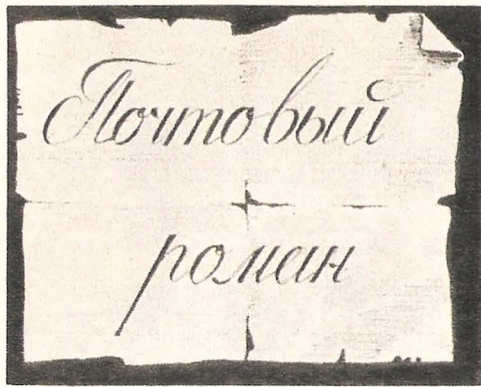 Почтовый
роман